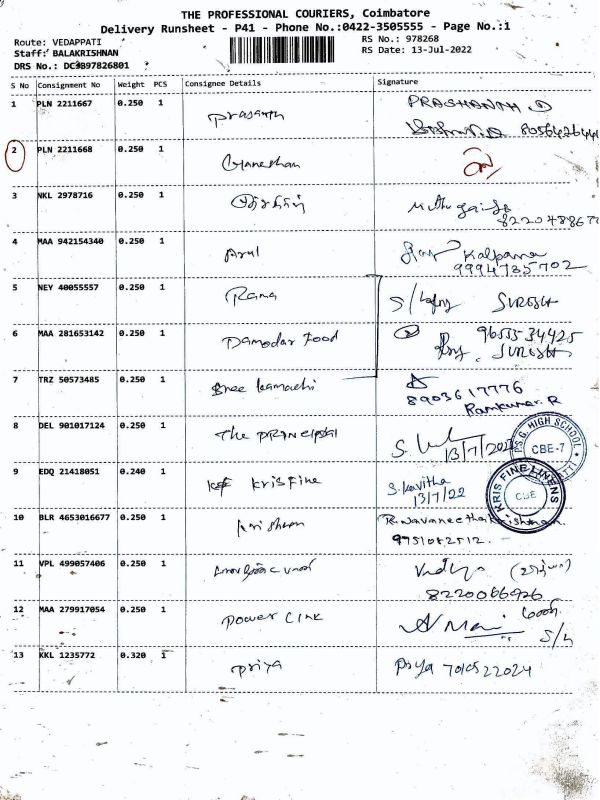 THE PROFESSIONAL COURIERS, Coimbatore
Delivery Runsheet - P41 - Phone No.:0422-3505555 - Page No.:1
Route: VEDAPPATI
RS No.: 978268
Staff: BALAKRISHNAN
RS Date: 13-Jul-2022
DRS No.: DC3897826801
S No Consignment No Weight PCS Consignee Details Signature
1 PLN 2211667 0.250 1 Prasanth PRASHANTH D
2 PLN 2211668 0.250 1 Ganeshan
3 NKL 2978716 0.250 1
4 MAA 942154340 0.250 1 Arul Kalpana
9994735702
5 NEY 40055557 0.250 1 Rama SURESH
6 MAA 281653142 0.250 1 Damodar Food 9655534425
SURESH
7 TRZ 50573485 0.250 1 Sree kamachi
8903617776
Ramkumar.R
8 DEL 901017124 0.250 1 The principal 13/7/2022
HIGH SCHOOL
CBE-7
9 EDQ 21418051 0.240 1 Kris Fine S.Kavitha
13/7/22
KRIS FINE LINENS
CBE
10 BLR 4653016677 0.250 1 Krishnan R.Navaneethakrishnan.
9751042512.
11 VPL 499057406 0.250 1 Vidhya
8220066926
12 MAA 279917054 0.250 1 Power Link Mani
S/h
13 KKL 1235772 0.320 1 Priya Priya